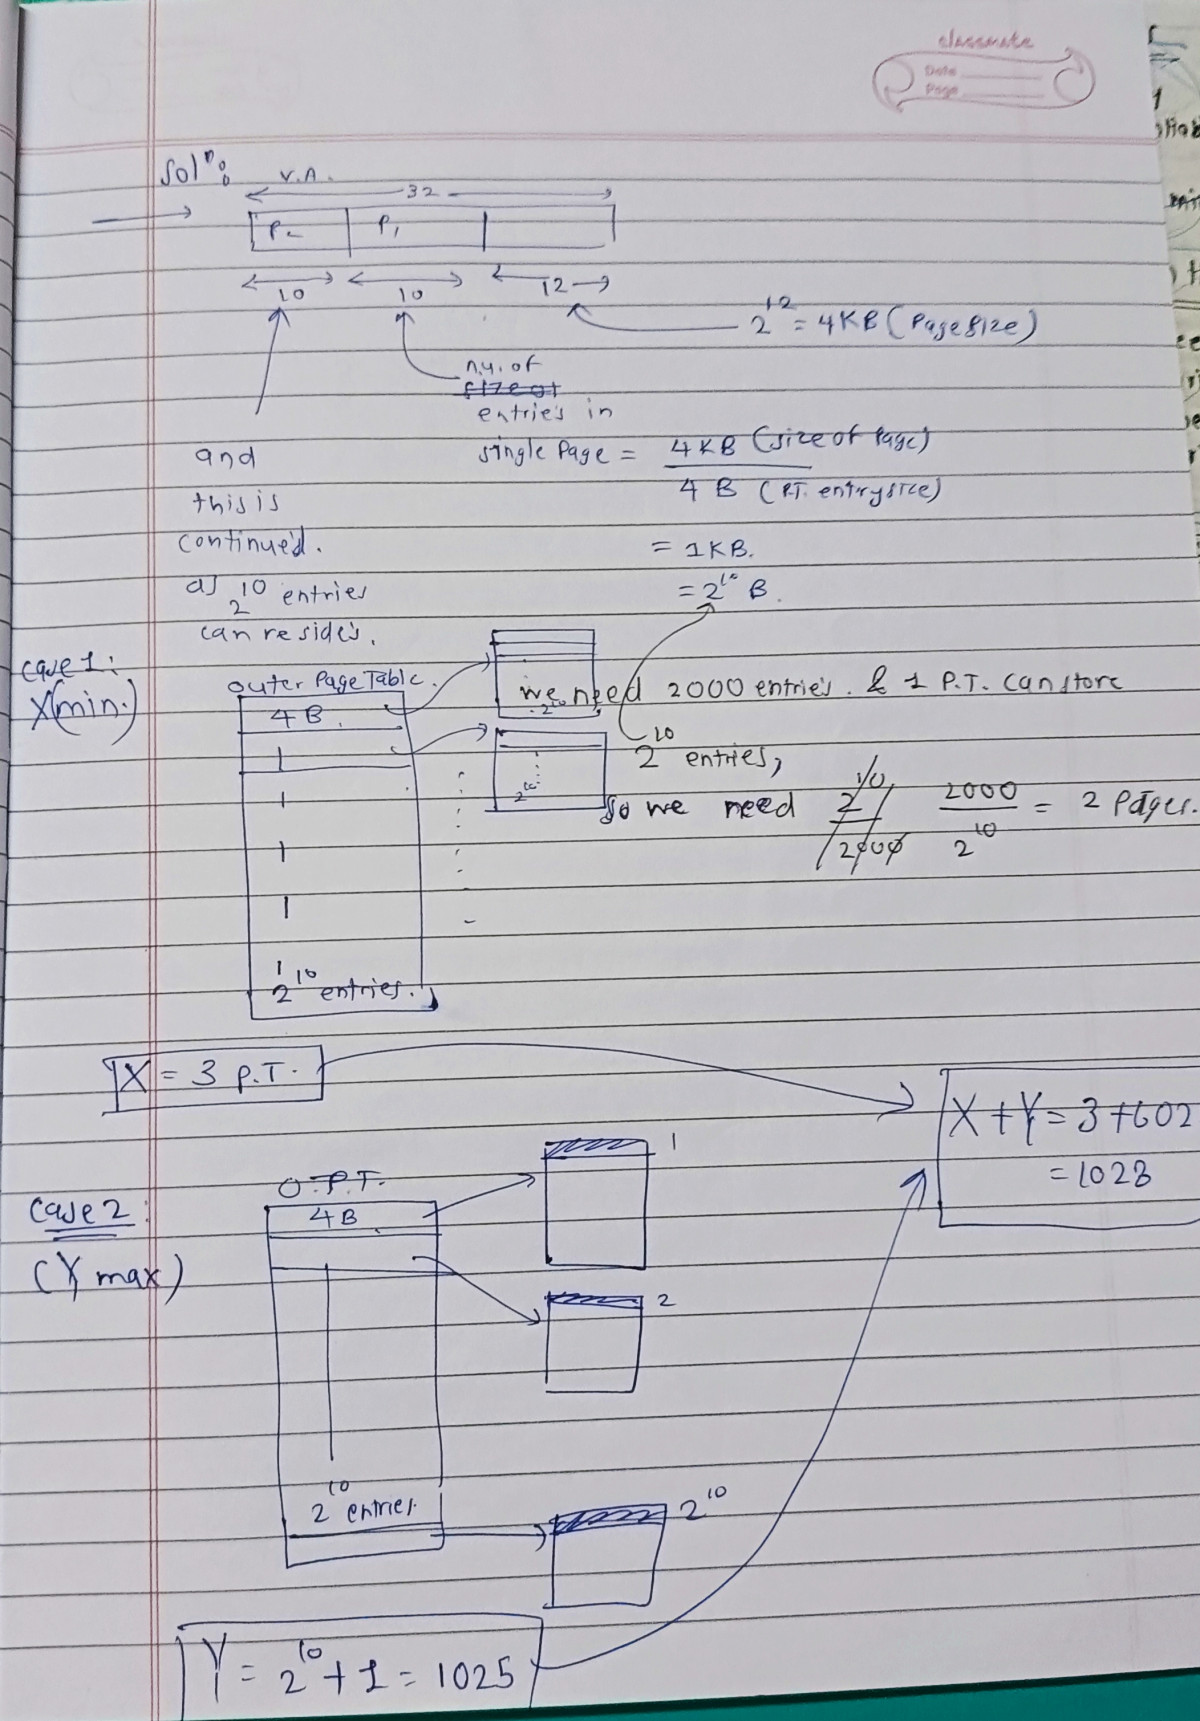 classmate
Date
Page
Solⁿ:
V.A.
32
P₂ P₁
10 10 12
2¹² = 4KB (Page size)
n.y. of
size of
entries in
single Page = 4KB (size of Page)
4 B (P.T. entry size)
and
this is
continued.
as 2¹⁰ entries
can resides.
= 1KB.
= 2¹⁰ B.
Case 1:
X(min.)
Outer Page Table.
4 B.
2¹⁰
we need 2000 entries. & 1 P.T. can store
2¹⁰ entries,
2¹⁰
So we need 2¹⁰/2000 2000/2¹⁰ = 2 Pages.
2¹⁰ entries.
X = 3 P.T.
X + Y = 3 + 102
= 1028
Case 2:
(Y max)
O.P.T.
4B
1
2
2¹⁰ entries.
2¹⁰
Y = 2¹⁰ + 1 = 1025